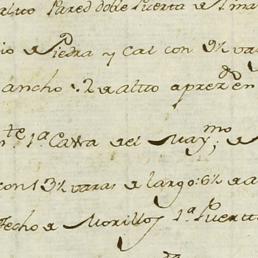 altto Pared doble Puerta de
io de Piedra y Cal con 9½ va
ancho : 2 de altto aprez.do en
te 1ª Cassa del May.mo de
con 13½ varas de largo: 6½ de a
Techo de Morillos 1ª Puertta